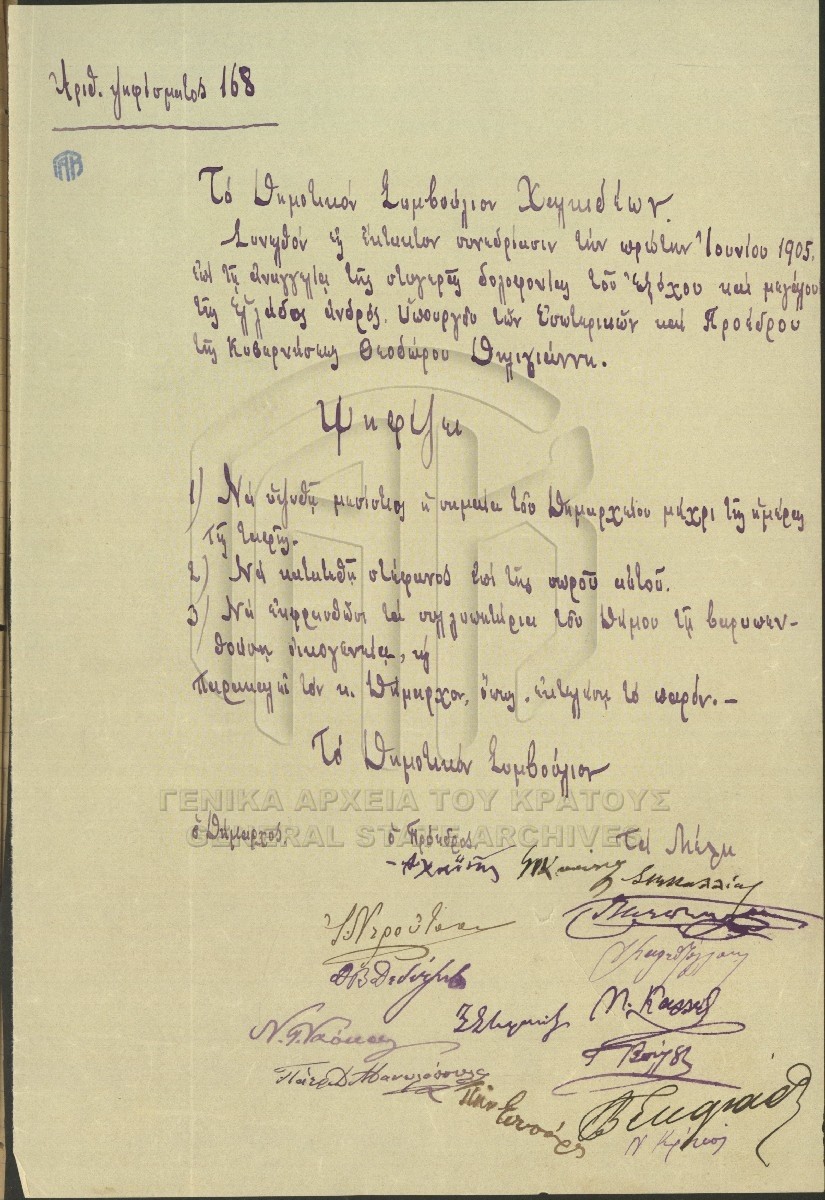 Ἀριθ. ψηφίσματος 168
Τό Δημοτικόν Συμβούλιον Χαλκιδέων.
Συνελθόν εἰς ἔκτακτον συνεδρίασιν τήν πρώτην Ἰουνίου 1905.
ἐπί τῇ ἀναγγελίᾳ τῆς στυγερᾶς δολοφονίας τοῦ ἐξόχου καί μεγάλου
τῆς Ἑλλάδος ἀνδρός. Ὑπουργοῦ τῶν Ἐσωτερικῶν καί Προέδρου
τῆς Κυβερνήσεως Θεοδώρου Δηλιγιάννη.
Ψηφίζει
1) Νά ὑψωθῇ μεσίστιος ἡ σημαία τοῦ Δημαρχείου μέχρι τῆς ἡμέρας
τῆς ταφῆς.
2) Νά κατατεθῇ στέφανος ἐπί τῆς σοροῦ αὐτοῦ.
3) Νά ἐκφρασθῶσι τά συλλυπητήρια τοῦ Δήμου τῇ βαρυπεν-
θούσῃ οἰκογενείᾳ, καί
Παρακαλεῖ τόν κ. Δήμαρχον, ὅπως ἐκτελέσῃ τό παρόν. —
Τό Δημοτικόν Συμβούλιον
ΓΕΝΙΚΑ ΑΡΧΕΙΑ ΤΟΥ ΚΡΑΤΟΥΣ
GENERAL STATE ARCHIVES
ὁ Δήμαρχος. ὁ Πρόεδρος. Τά Μέλη